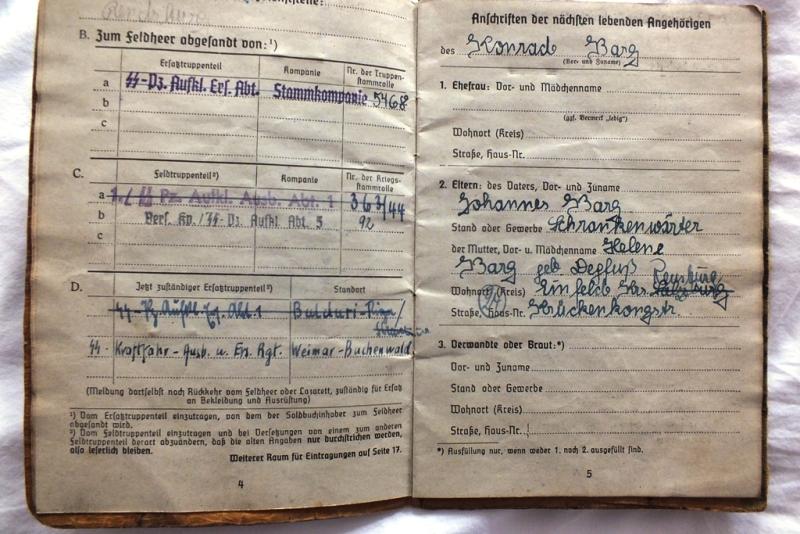 B. Zum Feldheer abgesandt von:¹)
Ersatztruppenteil
Kompanie
Nr. der Truppen-
stammrolle
a
SS-Pz. Aufkl. Ers. Abt.
Stammkompanie
5468
b
c
C.
Feldtruppenteil²)
Kompanie
Nr. der Kriegs-
stammrolle
a
1./SS Pz. Aufkl. Ausb. Abt. 1
363/44
b
Vers. Kp./SS-Pz. Aufkl. Abt. 5
92
c
D.
Jetzt zuständiger Ersatztruppenteil²)
Standort
SS-Pz. Aufkl. Ers. Abt. 1
Bulduri-Riga/
SS-Kraftfahr-Ausb. u. Ers. Rgt.
Weimar-Buchenwald
(Meldung dortselbst nach Rückkehr vom Feldheer oder Lazarett, zuständig für Ersatz
an Bekleidung und Ausrüstung)
¹) Vom Ersatztruppenteil einzutragen, von dem der Soldbuchinhaber zum Feldheer
abgesandt wird.
²) Vom Feldtruppenteil einzutragen und bei Versetzungen von einem zum anderen
Feldtruppenteil derart abzuändern, daß die alten Angaben nur durchstrichen werden,
also leserlich bleiben.
Weiterer Raum für Eintragungen auf Seite 17.
4
Anschriften der nächsten lebenden Angehörigen
des Konrad Barg
(Vor- und Zuname)
1. Ehefrau: Vor- und Mädchenname
(ggf. Vermerk „ledig“)
Wohnort (Kreis)
Straße, Haus-Nr.
2. Eltern: des Vaters, Vor- und Zuname
Johannes Barg
Stand oder Gewerbe Schrankenwärter
der Mutter, Vor- u. Mädchenname Helene
Barg geb. Depfuß
Wohnort (Kreis)
Straße, Haus-Nr.
3. Verwandte oder Braut:*)
Vor- und Zuname
Stand oder Gewerbe
Wohnort (Kreis)
Straße, Haus-Nr.
*) Ausfüllung nur, wenn weder 1. noch 2. ausgefüllt sind.
5